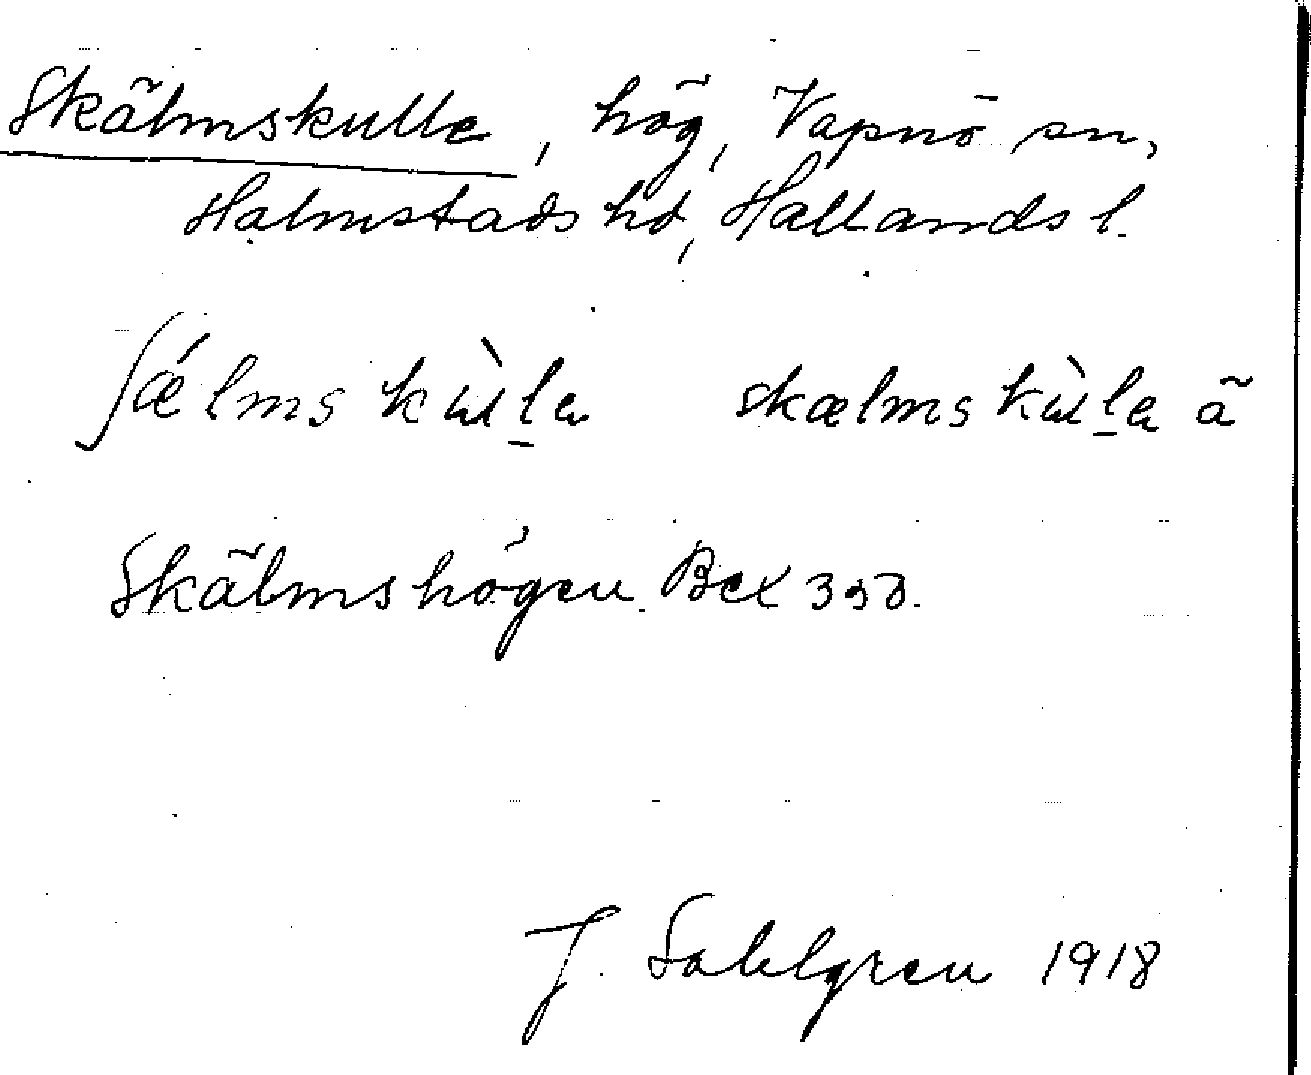 Skälmskulle, hög, Vapnö sn,
Halmstads hd, Hallands l.
ʃǽlms kùl̲a skælms kùl̲a ä
Skälmshögen. Bex 350.
J. Sahlgren 1918